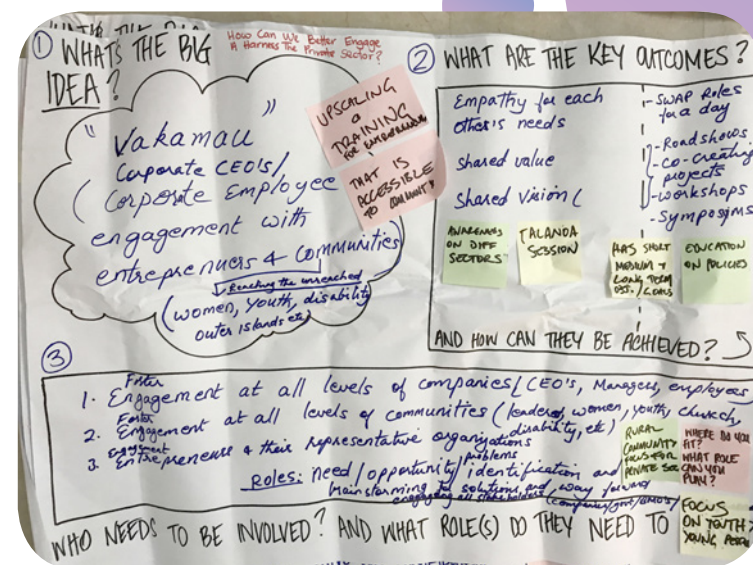 ① WHAT'S THE BIG
IDEA?
How Can We Better Engage
& Harness The Private Sector?
"Vakamau"
Corporate CEO'S/
(Corporate Employee
engagement with
entreprenuers & communities
Reaching the unreached
(women, youth, disability
outer islands etc)
UPSCALING
a
TRAINING
FOR ENTREPRENEURS
THAT IS
ACCESSIBLE
TO COMMUNITY
② WHAT ARE THE KEY OUTCOMES?
Empathy for each
other's needs
shared value
Shared Vision (
- SWAP Roles
for a day
- Roadshows
- Co-creating
projects
- workshops
- Symposiums
AWARENESS
ON DIFF
SECTORS
TALANOA
SESSION
HAS SHORT
MEDIUM &
LONG TERM
/GOALS
EDUCATION
ON POLICIES
AND HOW CAN THEY BE ACHIEVED?
③
Foster
1. Engagement at all levels of companies (CEO's, Managers, employees
Foster
2. Engagement at all levels of communities (leaders, women, youth, church,
disability, etc)
Engagement
3. Entrepreneurs & their representative organizations
problems
Roles: need/opportunity/identification and
brainstorming for solutions and way forward
engaging all stakeholders (companies/govt/
RURAL
COMMUNITY
FOCUS FOR
PRIVATE SEC
WHERE DO YOU
FIT?
WHAT ROLE
CAN YOU
PLAY?
FOCUS
ON YOUTH
YOUNG
WHO NEEDS TO BE INVOLVED? AND WHAT ROLE(S) DO THEY NEED TO